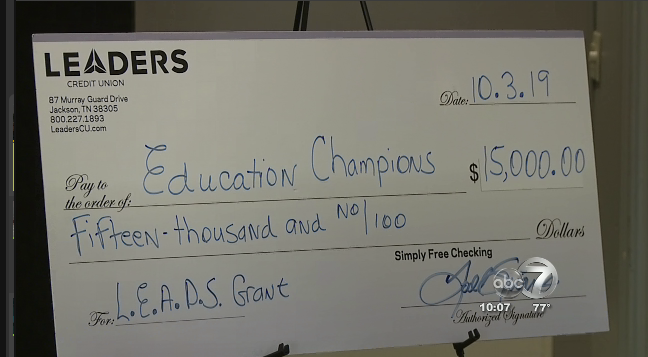 LEADERS
CREDIT UNION
87 Murray Guard Drive
Jackson, TN 38305
800.227.1893
LeadersCU.com
Date: 10.3.19
Pay to
the order of: Education Champions $ 15,000.00
Fifteen-thousand and NO/100 Dollars
Simply Free Checking
For: L.E.A.D.S. Grant
Authorized Signature
abc 7
10:07 77°